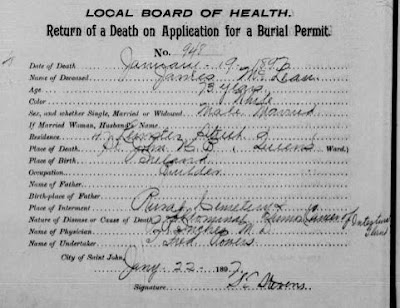 LOCAL BOARD OF HEALTH.
Return of a Death on Application for a Burial Permit.
No. 948
Date of Death January 19 189
Name of Deceased, James McLean
Age 73 years
Color White
Sex, and whether Single, Married or Widowed Male Married
If Married Woman, Husband's Name
Residence Leinster Street
Place of Death, St John N B , Queens Ward.)
Place of Birth Ireland
Occupation, Builder
Name of Father,
Birth-place of Father
Place of Interment Rural Cemetery
Nature of Disease or Cause of Death Abdominal
Name of Physician, M D
Name of Undertaker
City of Saint John, Jany 22 1897
Signature,